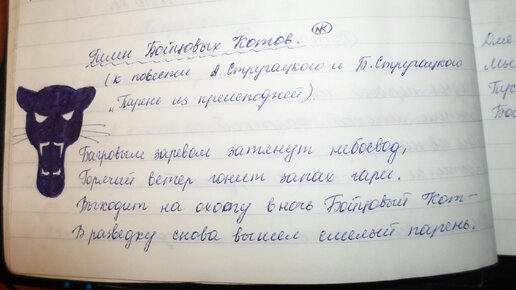 Гимн Бойцовых Котов. NK
(к повести А.Стругацкого и Б.Стругацкого
„Парень из преисподней).
Багровым заревом затянут небосвод,
Горячий ветер гонит запах гари.
Выходит на охоту в ночь Бойцовый Кот –
В разведку снова вышел смелый парень.
Мы